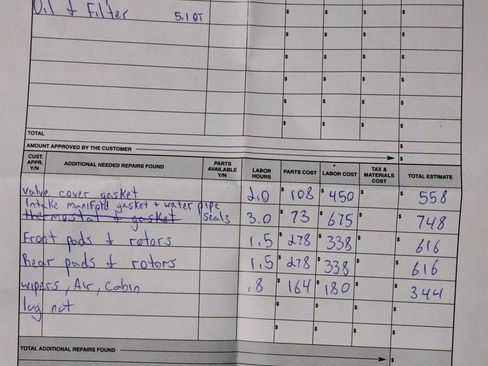 Oil + Filter 5.1 QT $ $ $ $
$ $ $ $
$ $ $ $
$ $ $ $
$ $ $ $
TOTAL $
AMOUNT APPROVED BY THE CUSTOMER $
CUST. APPR. Y/N ADDITIONAL NEEDED REPAIRS FOUND PARTS AVAILABLE Y/N LABOR HOURS PARTS COST LABOR COST TAX & MATERIALS COST TOTAL ESTIMATE
valve cover gasket 2.0 $ 108 $ 450 $ $ 558
Intake manifold gasket + water pipe seals
thermostat + gasket 3.0 $ 73 $ 675 $ $ 748
Front pads + rotors 1.5 $ 278 $ 338 $ $ 616
Rear pads + rotors 1.5 $ 278 $ 338 $ $ 616
wipers, Air, Cabin .8 $ 164 $ 180 $ $ 344
lug nut $ $ $ $
$ $ $ $
TOTAL ADDITIONAL REPAIRS FOUND $